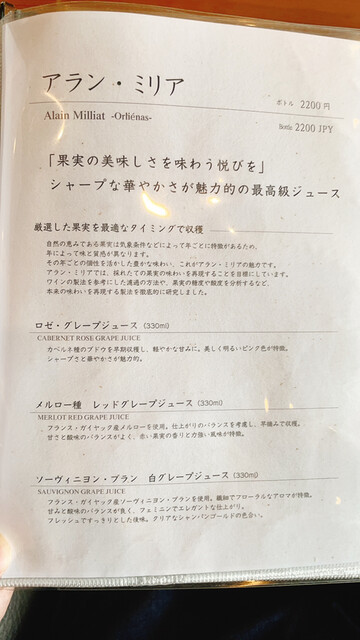 アラン・ミリア
ボトル 2200 円
Alain Milliat -Orliénas-
Bottle 2200 JPY
「果実の美味しさを味わう悦びを」
シャープな華やかさが魅力的の最高級ジュース
厳選した果実を最適なタイミングで収穫
自然の恵みである果実は気象条件などによって年ごとに特徴があるため、
年によって味と質感が異なります。
その年ごとの個性を活かした豊かな味わい、これがアラン・ミリアの魅力です。
アラン・ミリアでは、採れたての果実の味わいを再現することを目標にしています。
ワインの製法を参考にした濾過の方法や、果実の糖度や酸度を分析するなど、
本来の味わいを再現する製法を徹底的に研究しました。
ロゼ・グレープジュース (330ml)
CABERNET ROSE GRAPE JUICE
カベルネ種のブドウを早期収穫し、軽やかな甘みに。美しく明るいピンク色が特徴。
シャープさと華やかさが魅力的。
メルロー種 レッドグレープジュース (330ml)
MERLOT RED GRAPE JUICE
フランス・ガイヤック産メルローを使用。仕上がりのバランスを考慮し、早摘みで収穫。
甘さと酸味のバランスがよく、赤い果実の香りと力強い風味が特徴。
ソーヴィニヨン・ブラン 白グレープジュース (330ml)
SAUVIGNON GRAPE JUICE
フランス・ガイヤック産ソーヴィニヨン・ブランを使用。繊細でフローラルなアロマが特徴。
甘みと酸味のバランスが良く、フェミニンでエレガントな仕上がり。
フレッシュですっきりとした後味。クリアなシャンパンゴールドの色合い。